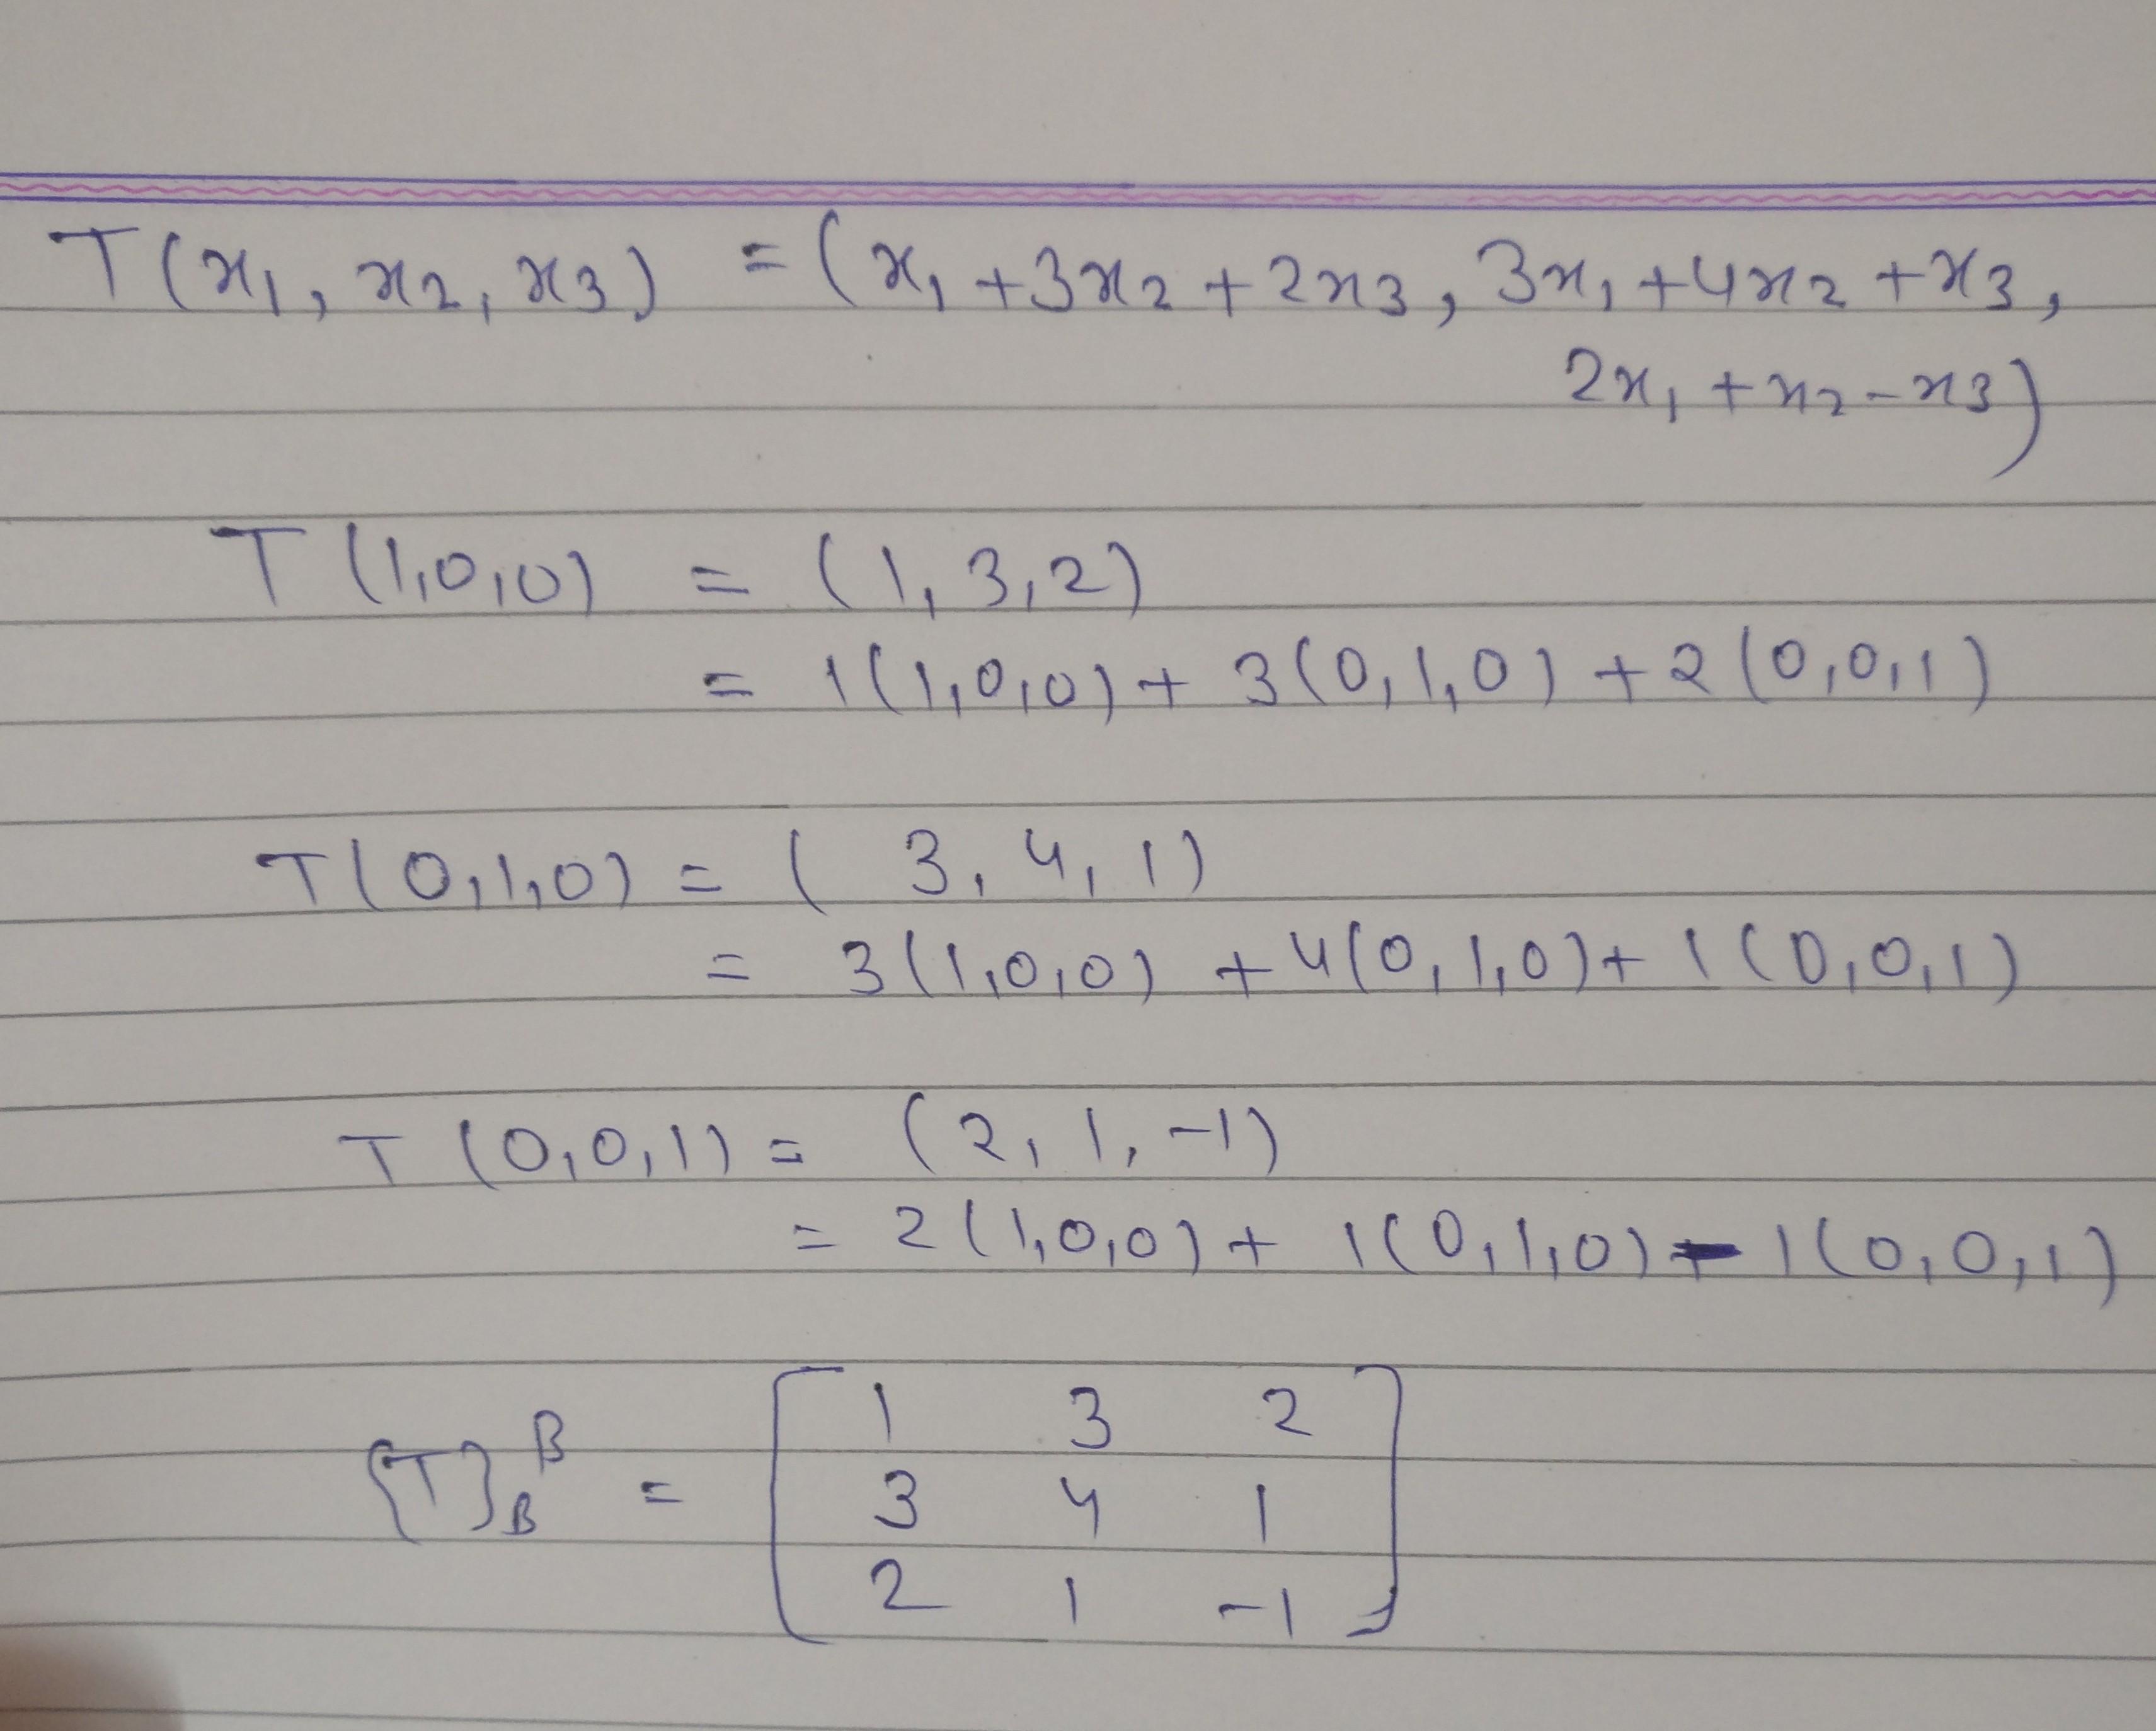 T(x₁, x₂, x₃) = (x₁ + 3x₂ + 2x₃, 3x₁ + 4x₂ + x₃,
2x₁ + x₂ - x₃)
T(1,0,0) = (1, 3, 2)
= 1(1,0,0) + 3(0,1,0) + 2(0,0,1)
T(0,1,0) = (3, 4, 1)
= 3(1,0,0) + 4(0,1,0) + 1(0,0,1)
T(0,0,1) = (2, 1, -1)
= 2(1,0,0) + 1(0,1,0) - 1(0,0,1)
[T]_B^B = [1 3 2
3 4 1
2 1 -1]